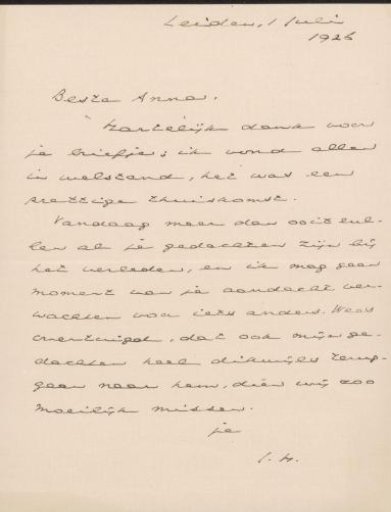 Leiden, 1 Juli
1926
Beste Anna.
Hartelijk dank voor
je briefje; ik vond allen
in welstand, het was een
prettige thuiskomst.
Vandaag meer dan ooit zul-
len al je gedachten zijn bij
het verleden, en ik mag geen
moment van je aandacht ver-
wachten voor iets anders. Wees
overtuigd, dat ook mijn ge-
dachten heel dikwijls terug-
gaan naar hem, dien wij zoo
moeilijk missen.
je